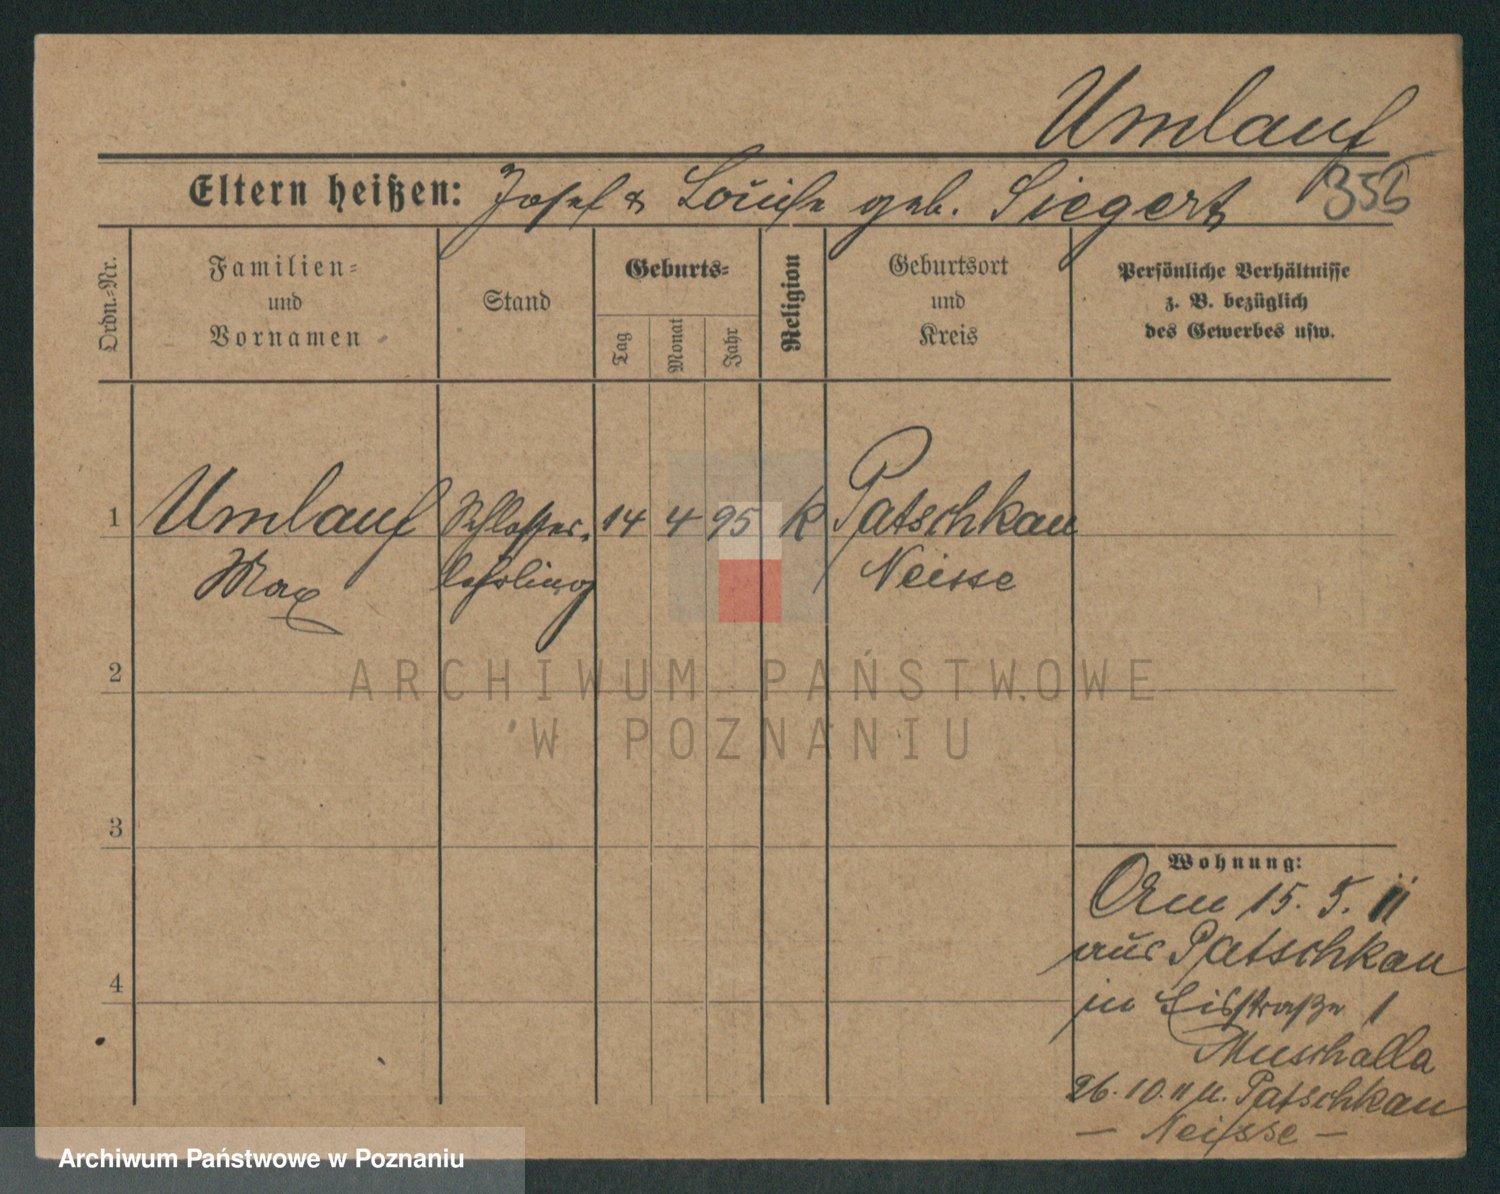 Umlauf
Eltern heißen: Josef & Louise geb. Siegert
Ordn.=Nr.
Familien=
und
Vornamen
Stand
Geburts=
Tag
Monat
Jahr
Religion
Geburtsort
und
Kreis
Persönliche Verhältnisse
z. B. bezüglich
des Gewerbes usw.
1 Umlauf Schlosser- 14 4 95 k Patschkau
Max lehrling Neisse
2
3
4
ARCHIWUM PAŃSTWOWE
W POZNANIU
Wohnung:
Am 15. 5. 11
aus Patschkau
in 1
Muschalla
26. 10. 11 n. Patschkau
– Neisse –
Archiwum Państwowe w Poznaniu